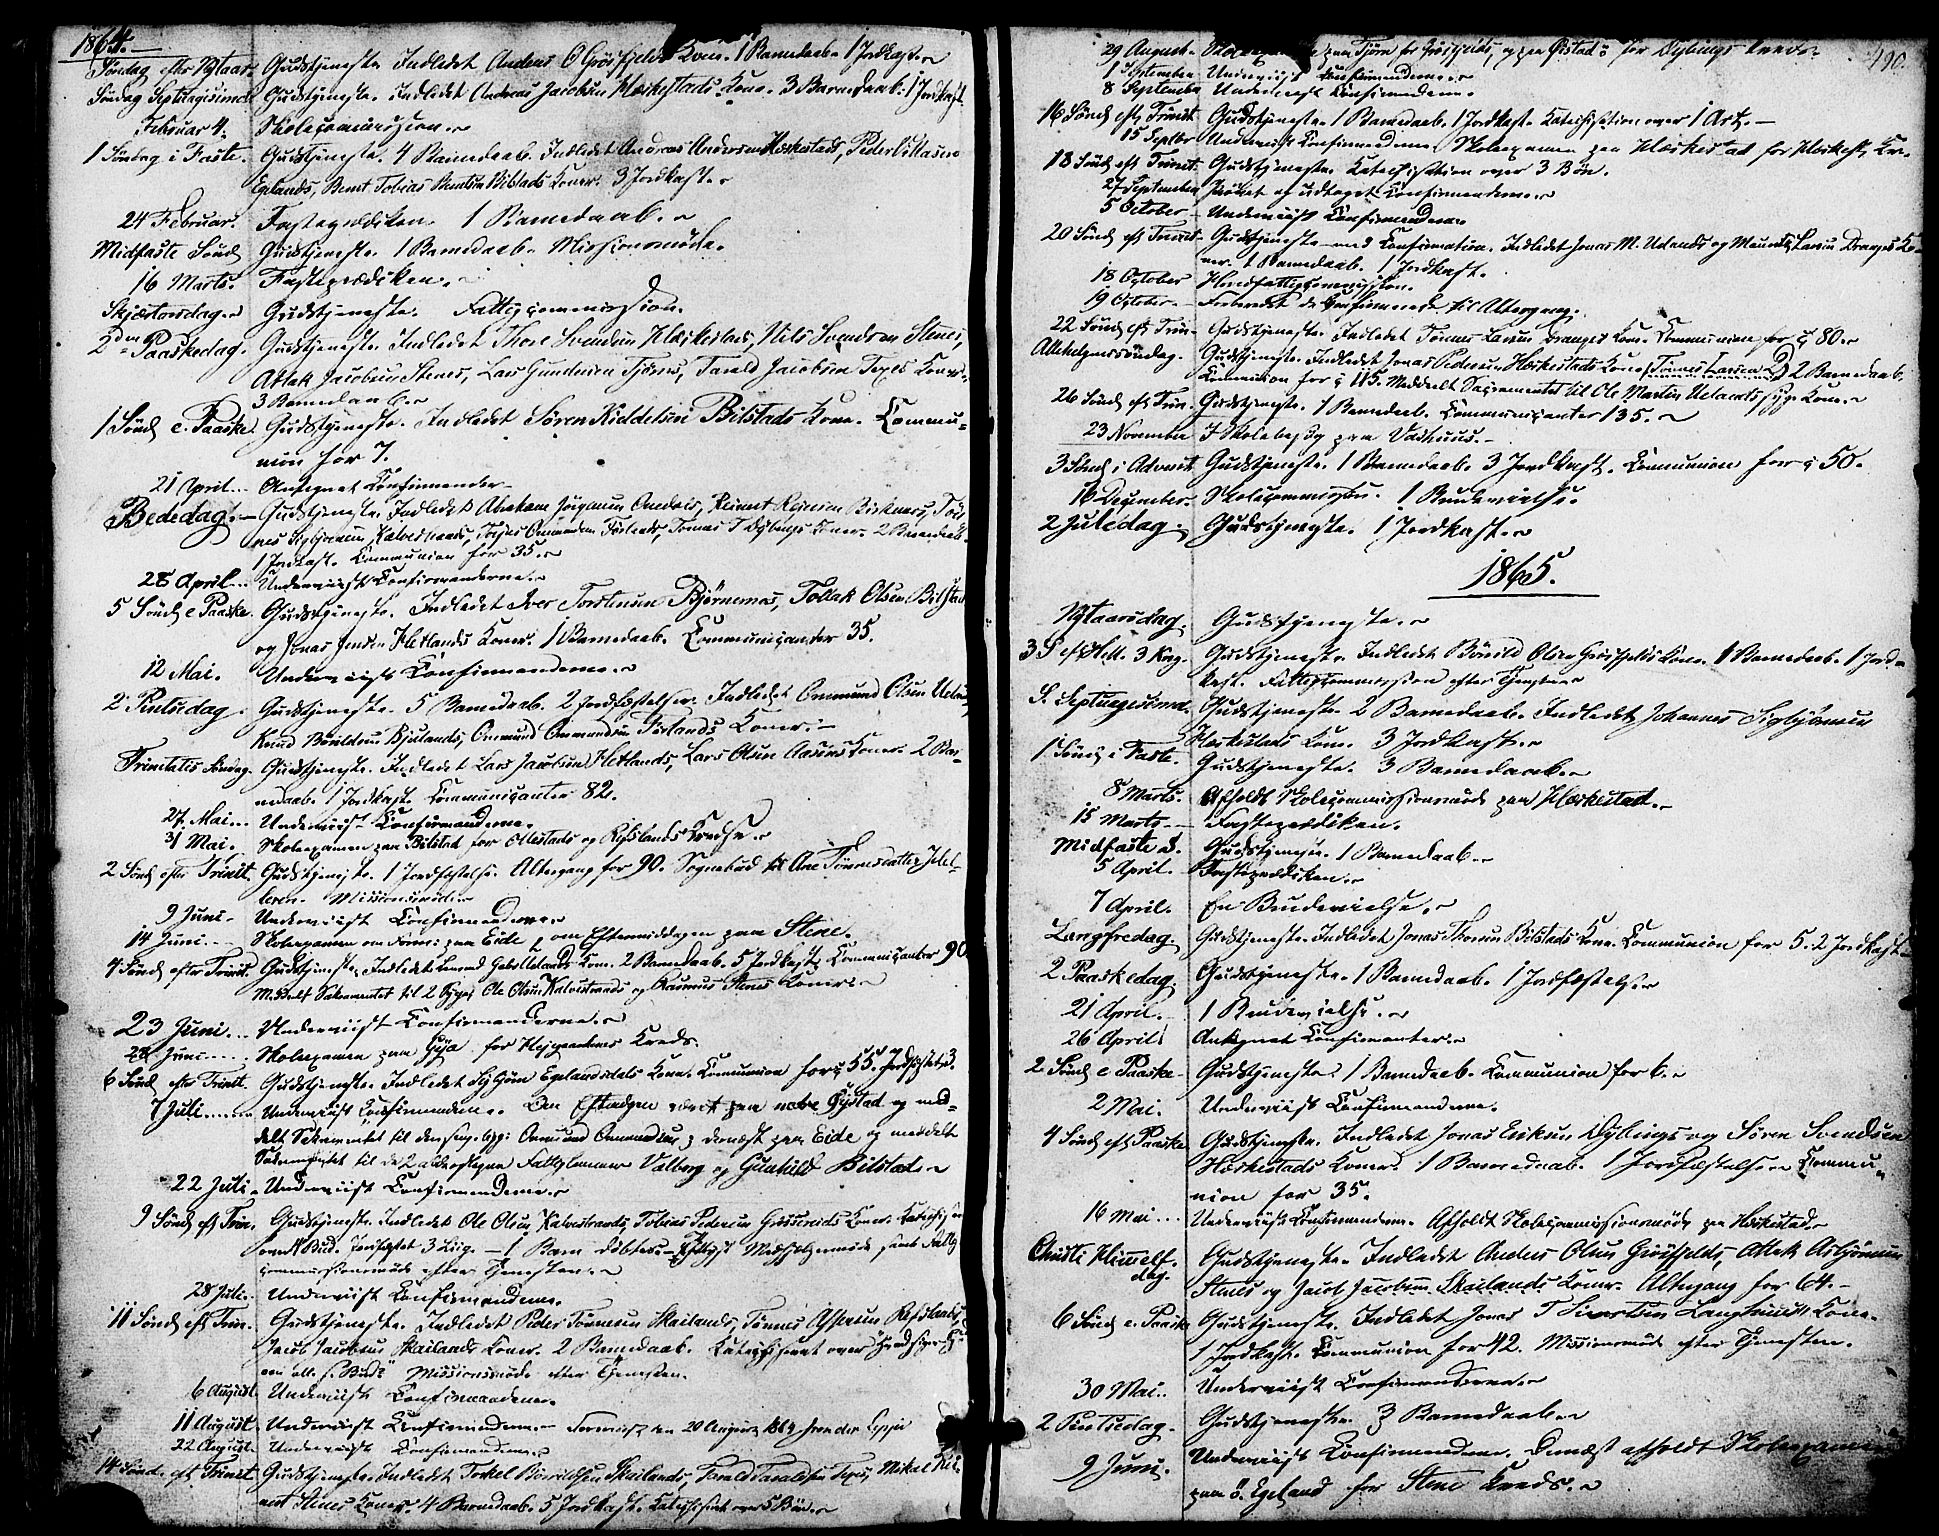 1864.
Søndag efter Nytaar. Gudstjeneste. Indledet Anders O Grøsfjelds Kone. 1 Barnedaab. 1 Jordkast.
Søndag Septuagesima. Gudstjeneste. Indledet Andreas Jacobsen Hæskestads Kone. 3 Barnedaab. 1 Jordkast.
Februar 4. Skolecommission.
1 Søndag i Faste. Gudstjeneste. 4 Barnedaab. Indledet Andreas Andersen Hæskestads, Peder
Egelands, Bernt Tobias Bilstads Koner. 3 Jordkast.
24 Februar. Fasteprædiken. 1 Barnedaab.
Midfaste Sønd. Gudstjeneste. 1 Barnedaab. Missionsmøde.
16 Marts. Fasteprædiken.
Skjærtorsdag. Gudstjeneste. Fattigcommission.
2den Paaskedag. Gudstjeneste. Indledet Thore Svendsen Hæskestads, Nils Svendsen Stenes,
Atlak Jacobsen Stenes, Lars Gundersen Tjörns, Tarald Jacobsen Texes Koner.
3 Barnedaab.
1 Sönd. e. Paaske. Gudstjeneste. Indledet Sören Kieldsen Bilstads Kone. Commu-
nion for 7.
21 April. Antegnet Confirmander.
Bededag. Gudstjeneste. Indledet Abraham Jörgensen
Kalvestrands, Koner. 2 Barnedaab.
1 Jordkast. Communion for 35.
28 April. Underviist Confirmanderne.
5 Sönd. e Paaske. Gudstjeneste. Indledet Iver Torstensen Björnemos, Tollak Olsen Bilstad
og Jonas Jensen Hetlands Koner. 1 Barnedaab. Communicanter 35.
12 Mai. Underviist Confirmanderne.
2 Pintsedag. Gudstjeneste. 5 Barnedaab. 2 Jordfæstelser. Indledet Ommund Olsen
Knud Ommund Ommundsen Koner.
Trinitatis Søndag. Gudstjeneste. Indledet Lars Jacobsen Hetlands, Lars Olsen Aasens Koner. 2 Bar-
nedaab. 1 Jordkast. Communicanter 82.
27 Mai. Underviist Confirmanderne.
31 Mai. Skoleexamen paa Bilstad for Ollestads og Refslands Kreds.
2 Sönd. efter Trinit. Gudstjeneste. 1 Jordfæstelse. Altergang for 90. Sognebud til Ane Tönnesdatter
Missionsmöde.
9 Juni. Underviist Confirmanderne.
14 Juni. Skoleexamen om Form: paa Eide, om Eftermiddagen paa Stene.
4 Sönd. efter Trinit. Gudstjeneste. Indledet Kone. 2 Barnedaab. 5 Jordkast. Communicanter 90.
Meddelt Sakramentet til 2 Syge, Ole Olsen Kalvestrands og Rasmus Stenes Koner.
23 Juni. Underviist Confirmanderne.
Juni. Skoleexamen paa for Kreds.
6 Sönd. efter Trinit. Gudstjeneste. Indledet Egelandsdals Kone. Communion for 55. Jordfæstet 3.
7 Juli. Underviist Confirmanderne. været paa og med-
delt Sakramentet til Ommund Ommundsen; dernæst paa Eide og meddelt
Sakramentet til de 2 Fattiglemmer Valborg og Gunhild Bilstad.
22 Juli. Underviist Confirmanderne.
9 Sönd. eft Trin. Gudstjeneste. Indledet Ole Olsen Kalvestrands, Tobias Pedersen Koner.
4 Bud. Jordfæstet 3 Liig. 1 Barn döbtes. samt Fattig-
commissionsmöde efter Tjenesten.
28 Juli. Underviist Confirmanderne.
11 Sönd. eft Trin. Gudstjeneste. Indledet Peder Tönnesen Skailands, Tönnes Refslands,
Jacob Jacobsen Skailands Koner. 2 Barnedaab. Katechiseret over
Missionsmöde efter Tjenesten.
6 August. Underviist Confirmanderne.
11 August. Underviist Confirmanderne. 20 August 1864
22 August. Underviist Confirmanderne.
14 Sönd. eft Trinit. Gudstjeneste. Indledet Torkel Skailands, Tarald Taraldsen Texes, Mikal
Stenes Koner. 4 Barnedaab. 5 Jordkast. Katechiseret over 5 Bön.
490
29 August. paa Tjörn for Grøsfjelds, og paa Øistad for Dybings Kreds.
1 September Underviist Confirmanderne.
8 September Underviist Confirmanderne.
16 Sönd. eft. Trinit. Gudstjeneste. 1 Barnedaab. 1 Jordkast. Katechisation over 1 Art.
15 Septbr Underviist Confirmanderne. Skoleexamen paa Hæskestad for Hæskest. Kr.
18 Sönd. eft. Trinit. Gudstjeneste. Katechisation over 3 Bön.
27 September Prövet og udtaget Confirmanderne.
5 October. Underviist Confirmanderne.
20 Sönd. eft Trinit. Gudstjeneste med Confirmation. Indledet Jonas M. Uelands og Mauritz Larsen Dranges Ko-
ner. 1 Barnedaab. 1 Jordkast.
18 October Herredsfattigcommission.
19 October. Forberedt de Confirmerede til Altergang.
22 Sönd. eft Trin. Gudstjeneste. Indledet Tönnes Larsen Dranges Kone. Communion for 80.
Allehelgenssöndag. Gudstjeneste. Indledet Jonas Pedersen Hæskestads Kone (Tönnes Larsen D.) 2 Barnedaab.
Communion for 115. Meddeelt Sacramentet til Ole Martin Uelands syge Kone.
26 Sönd. eft Trin. Gudstjeneste. 1 Barnedaab. Communicanter 135.
23 November I Skolebesög paa Vashuus.
3 Sönd. i Advent Gudstjeneste. 1 Barnedaab. 3 Jordkast. Communion for 50.
16 December. Skolecommission. 1 Brudevielse.
2 Juledag. Gudstjeneste. 1 Jordkast.
1865.
Nytaarsdag. Gudstjeneste.
3 S. eft Hell. 3 Kong. Gudstjeneste. Indledet Börild Olsen Grøsfjelds Kone. 1 Barnedaab. 1 Jord-
kast. Fattigcommission efter Tjenesten.
S. Septuagesima. Gudstjeneste. 2 Barnedaab. Indledet Johannes Sigbjörnsen
Hæskestads Kone. 3 Jordkast.
1 Sönd. i Faste. Gudstjeneste. 3 Barnedaab.
8 Marts. Afholdt Skolecommissionsmöde paa Hæskestad.
15 Marts. Fasteprædiken.
Midfaste S. Gudstjeneste. 1 Barnedaab.
5 April. Fasteprædiken.
7 April. En Brudevielse.
Langfredag. Gudstjeneste. Indledet Jonas Thomsen Bilstads Kone. Communion for 5. 2 Jordkast.
2 Paaskedag. Gudstjeneste. 1 Barnedaab. 1 Jordfæstelse.
21 April. 1 Brudevielse.
26 April. Antegnet Confirmanter.
2 Sönd. e Paaske. Gudstjeneste. 1 Barnedaab. Communion for 6.
2 Mai. Underviist Confirmanderne.
4 Sönd. eft Paaske Gudstjeneste. Indledet Jonas Eriksen Dybings og Sören Svendsen
Hæskestads Koner. 1 Barnedaab. 1 Jordfæstelse. Commu-
nion for 35.
16 Mai. Underviist Confirmanderne. Afholdt Skolecommissionsmöde paa Hæskestad.
Christi Himmelf. dag. Gudstjeneste. Indledet Anders Olsen Grøsfjelds, Atlak Asbjörnsen
Stenes og Jacob Jacobsen Skailands Koner. Altergang for 64.
6 Sönd. e. Paaske Gudstjeneste. Indledet Jonas T. Sivertsen Kone.
1 Jordkast. Communion for 42. Missionsmöde efter Tjenesten.
30 Mai. Underviist Confirmanderne.
2 Pintsedag. Gudstjeneste. 3 Barnedaab.
9 Juni. Underviist Confirmanderne. Dernæst afholdt Skoleexamen
paa ö. Egeland for Stene Kreds.